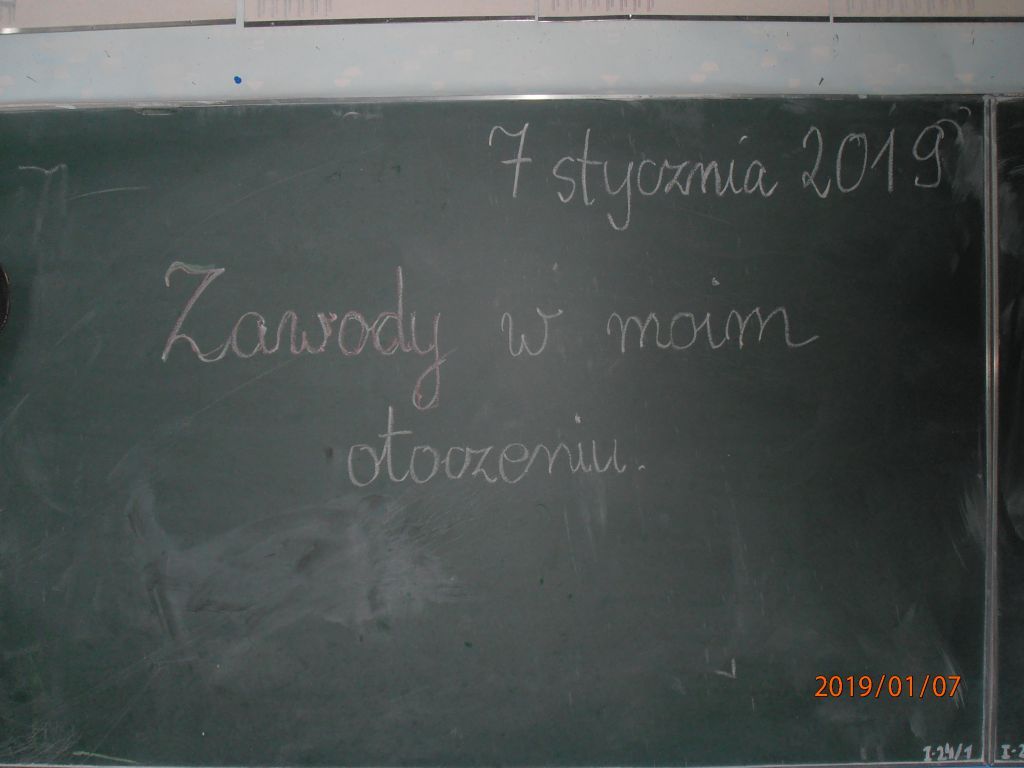 7 stycznia 2019
Zawody w moim
otoczeniu.
2019/01/07
I-24/1